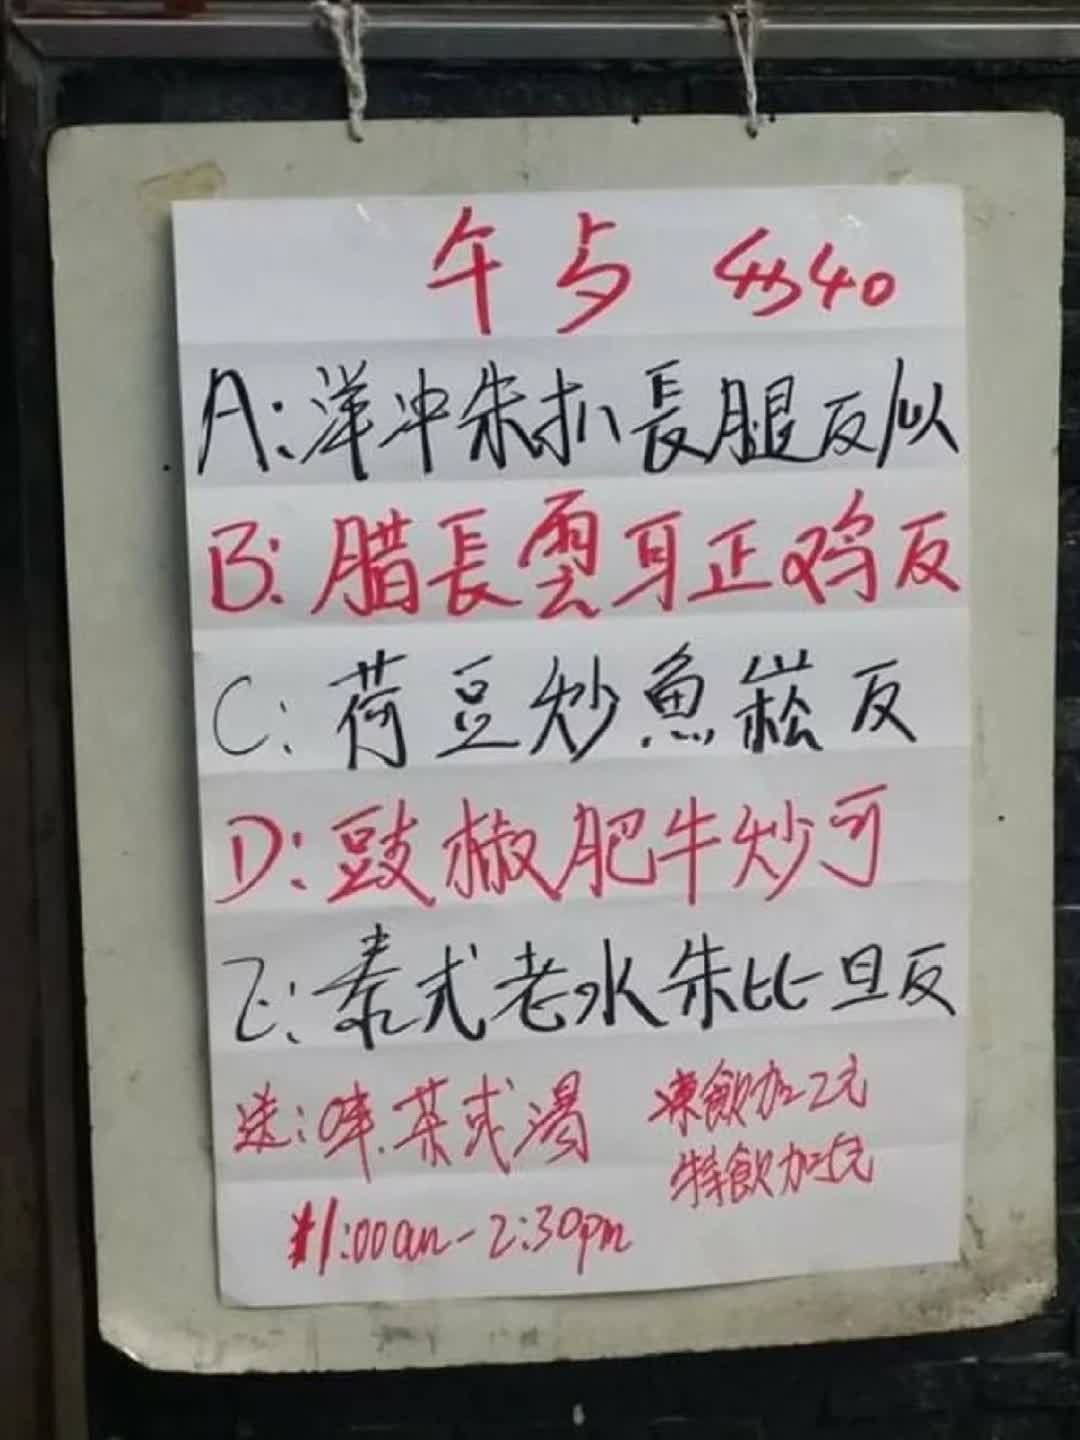 午占 $40
A:洋冲朱扒長腿反/以
B:腊長雲耳正鸡反
C:荷豆炒魚崧反
D:豉椒肥牛炒可
E:泰式老水朱比旦反
送:啡.茶或湯
凍飲加2元
特飲加5元
11:00am-2:30pm